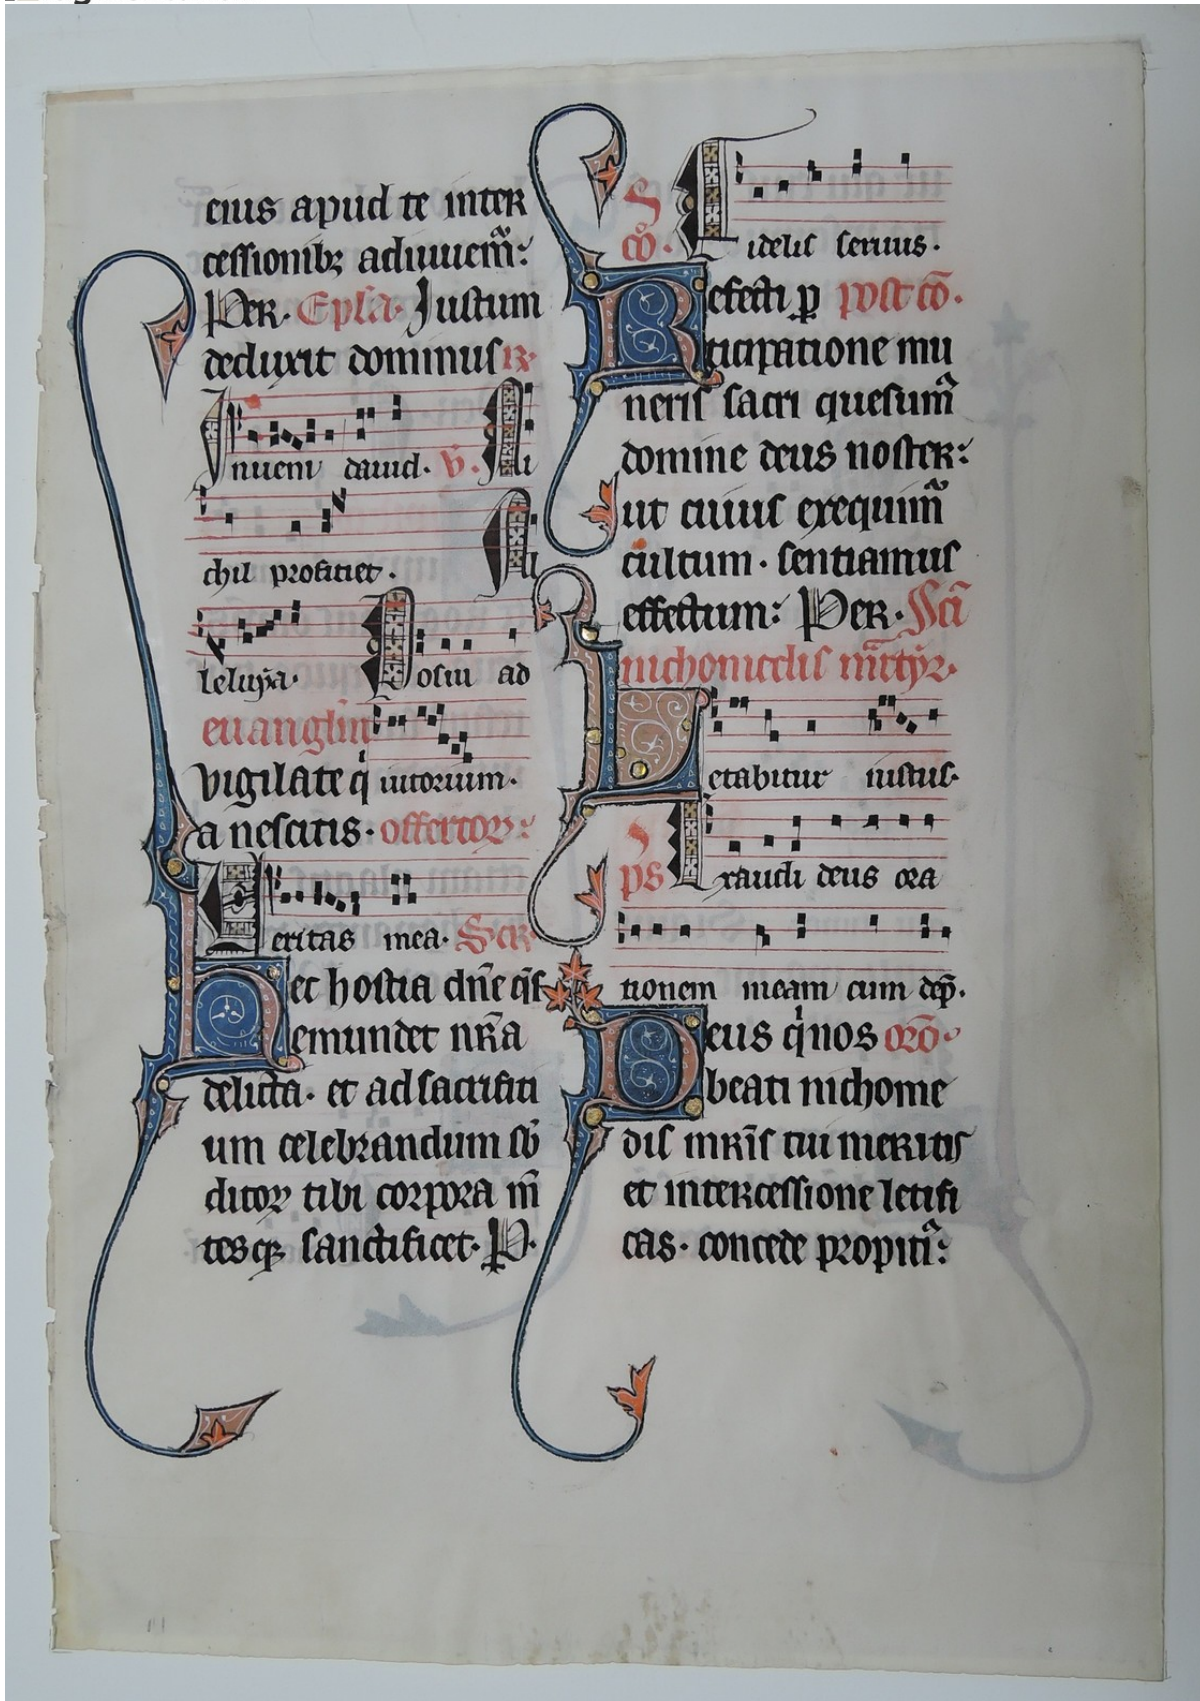 eius apud te inter
cessionibꝫ adiuuem᷑:
Per. Epl'a. Iustum
deduxit dominus ℟.
Inueni dauid. V̄. Ni
chil proficiet. All
leluya. Posui ad
euangliū iutorium.
vigilate qi
a nescitis. offertoꝝ:
Veritas mea. Secr
Hec hostia dn̄e q̄s
emundet nr̄a
delicta. et ad sacrifici
um celebrandum sb̄
ditoꝝ tibi corpora m̄
tesqꝫ sanctificet. P.
Cō. Fidelis seruus.
Refecti ꝑ post cō.
ticipatione mu
neris sacri quesum᷑
domine deus noster:
ut cuius exequim᷑
cultum. sentiamus
effectum: Per. Sci
nichomedis mr̄tyr.
Letabitur iustus.
ps Exaudi deus ora
tionem meam cum dep̄.
Deus qi nos orō.
beati nichome
dis mr̄is tui meritis
et intercessione letifi
cas. concede propiti᷑: